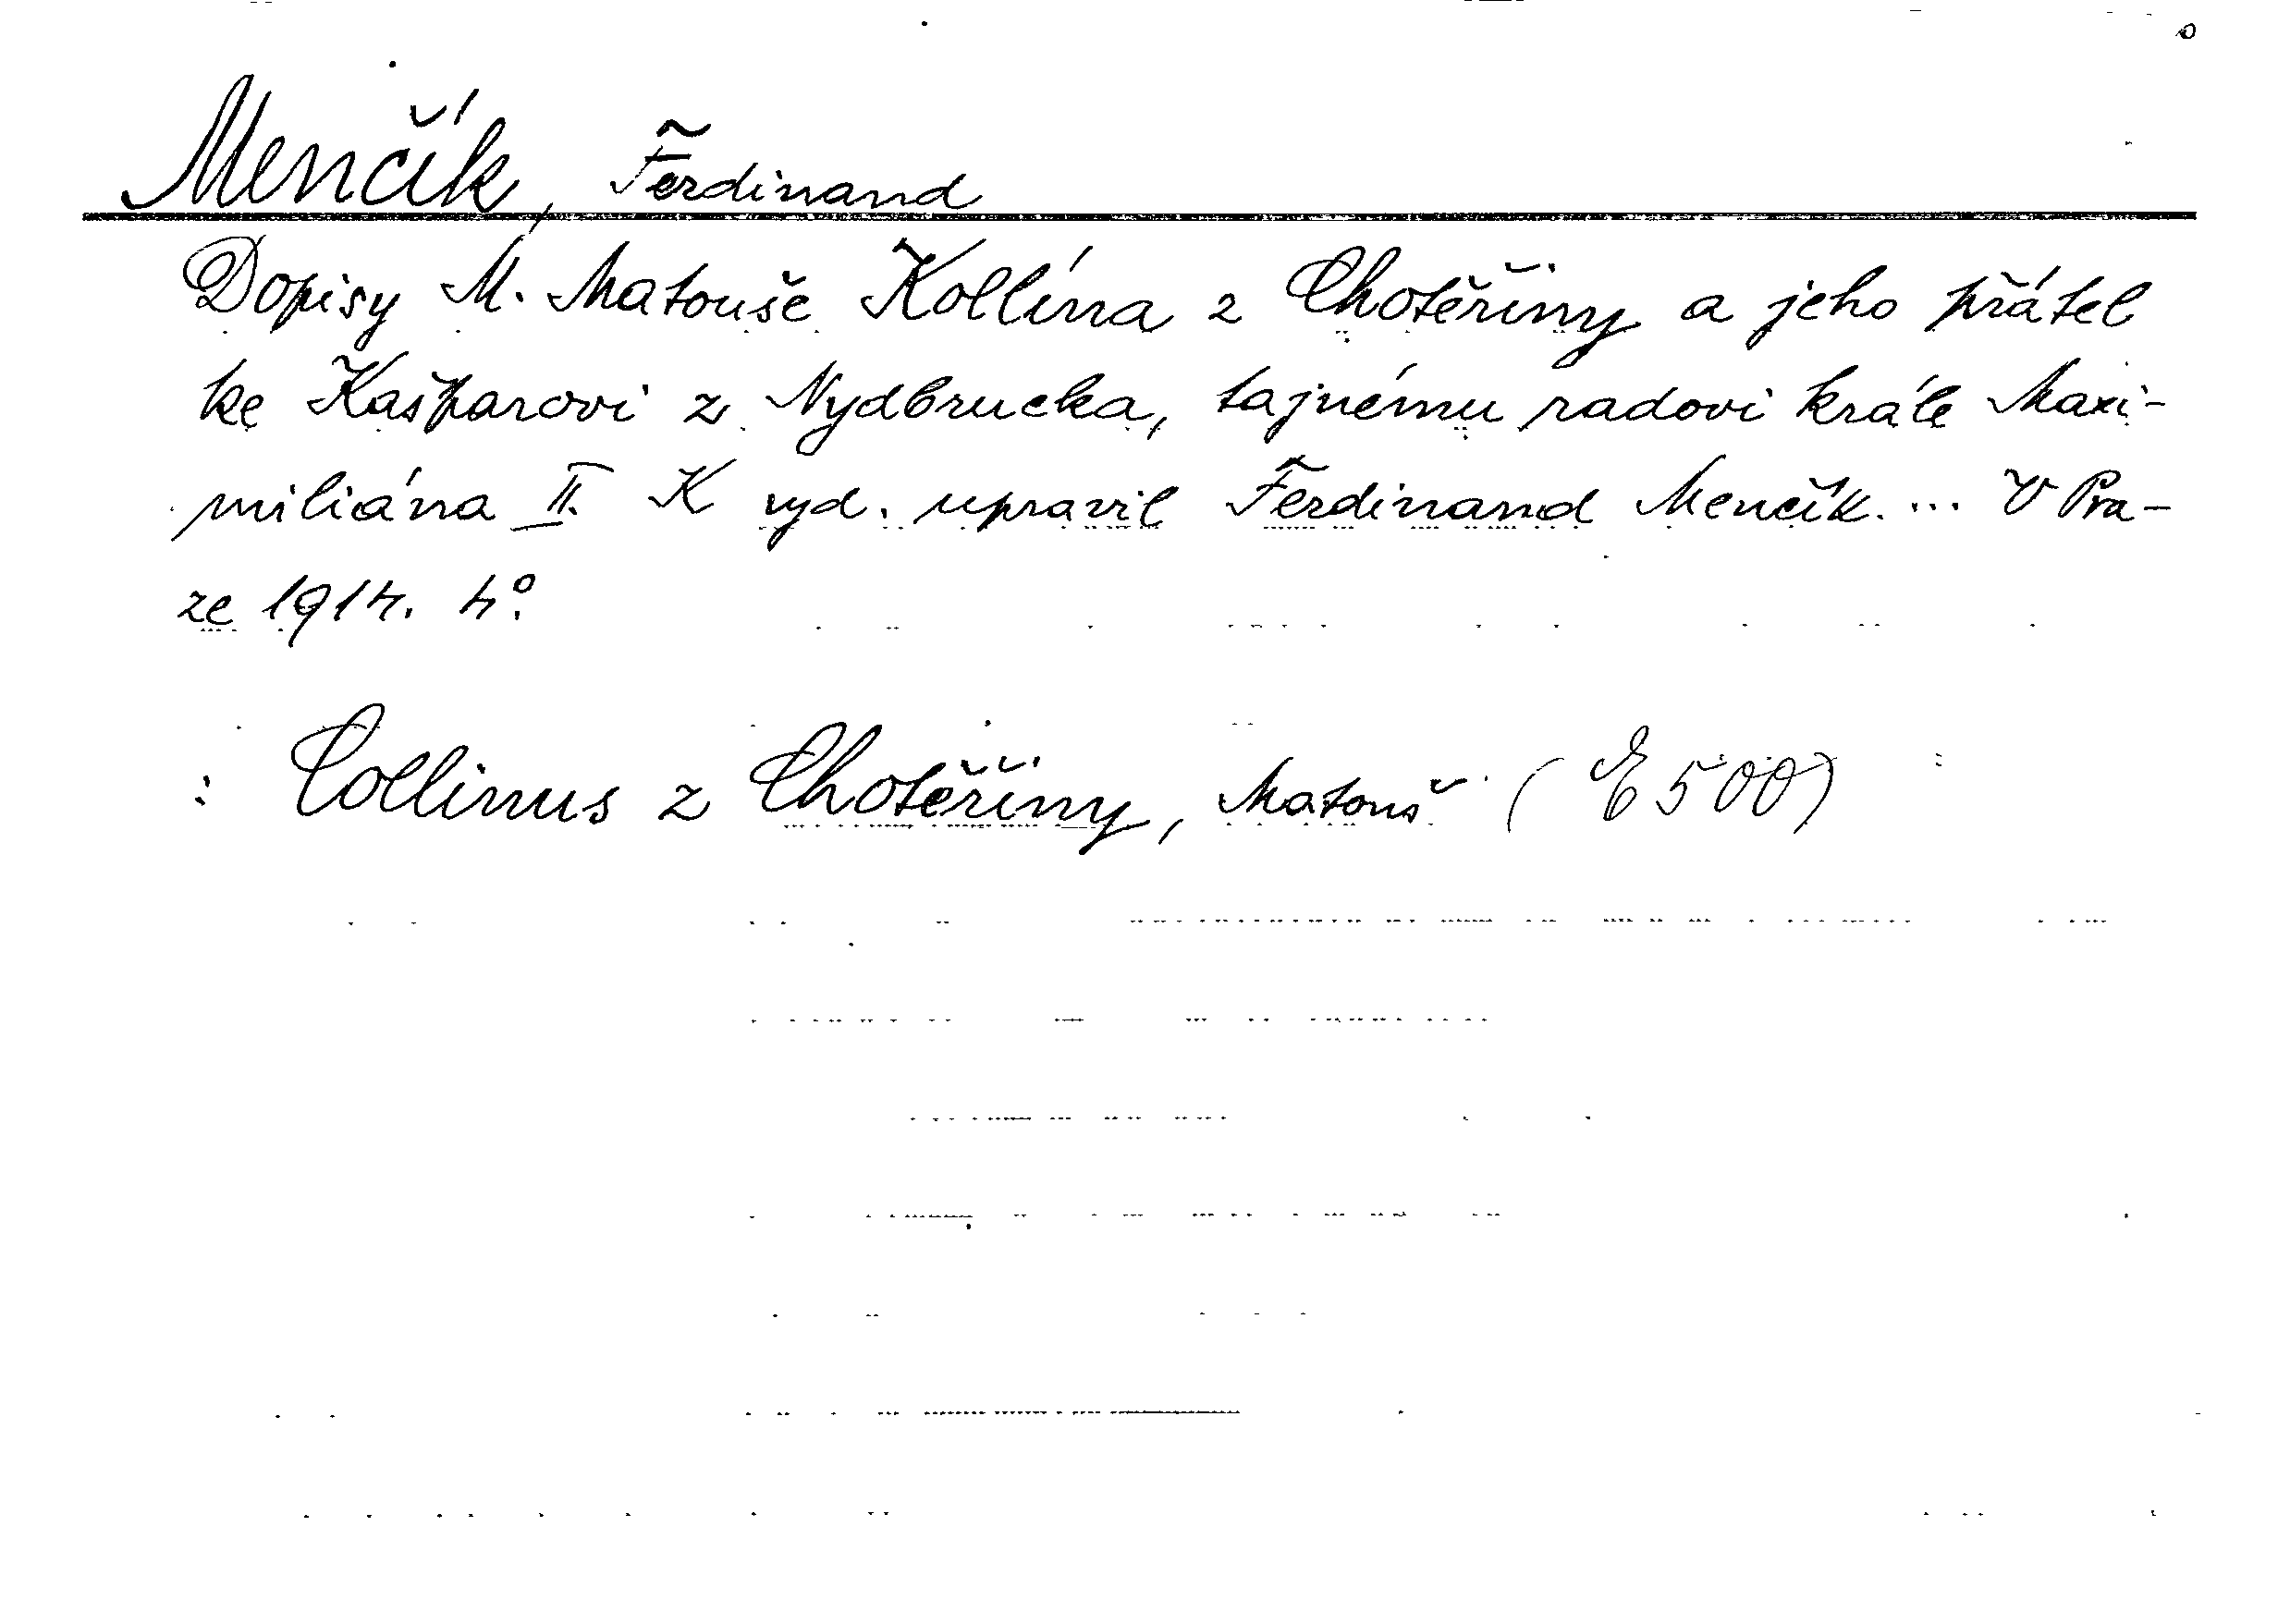 Menčík, Ferdinand
Dopisy M. Matouše Kollína z Chotěřiny a jeho přátel
ke Kašparovi z Nydbrucka, tajnému radovi krále Maxi-
miliána II. K vyd. upravil Ferdinand Menčík. ... V Pra-
ze 1914. 4°.
: Collinus z Chotěřiny, Matouš (E 500)